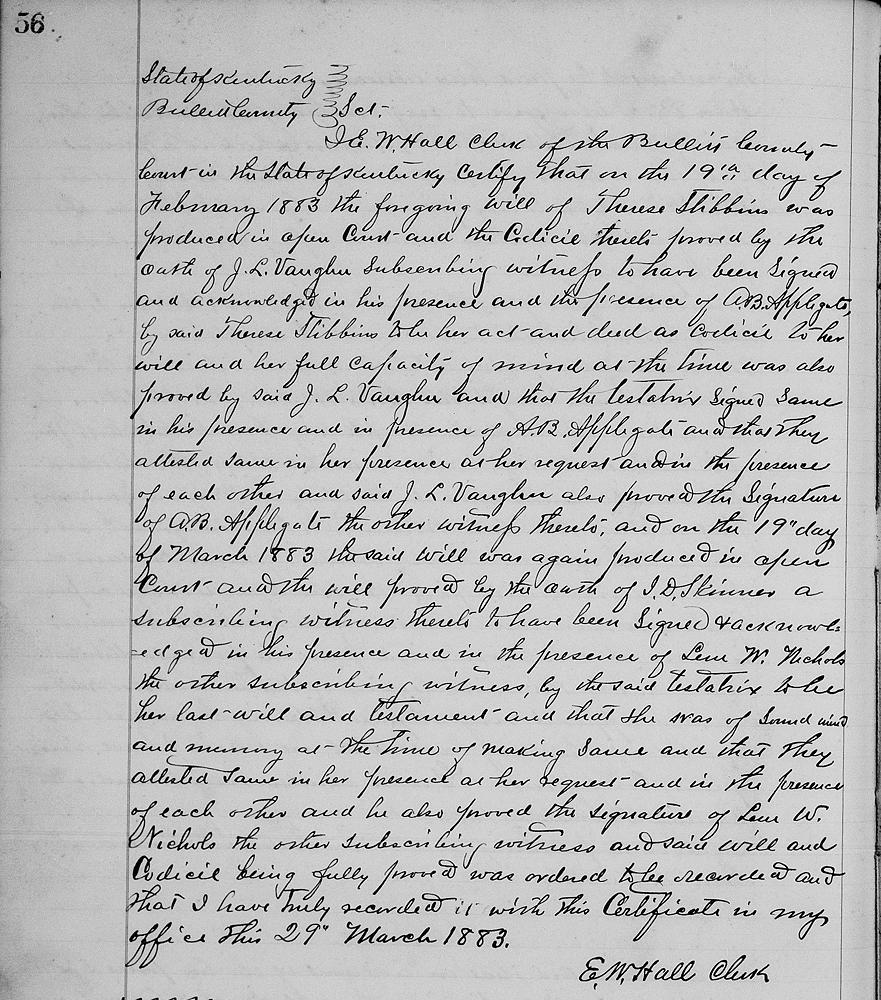 56
State of Kentucky
Bullitt County } Sct.
I E. W. Hall Clerk of the Bullitt County
Court in the State of Kentucky Certify that on the 19th day of
February 1883 the foregoing will of Therese Stibbins was
produced in open Court and the Codicil thereto proved by the
oath of J. L. Vaughn Subscribing witness to have been Signed
and acknowledged in his presence and the presence of A.B. Applegate,
by said Therese Stibbins to be her act and deed as Codicil to her
will and her full capacity of mind at the time was also
proved by said J. L. Vaughn and that the testatrix Signed Same
in his presence and in presence of A.B. Applegate and that they
attested Same in her presence at her request and in the presence
of each other and said J. L. Vaughn also proved the Signature
of A.B. Applegate the other witness thereto, and on the 19" day
of March 1883 the said will was again produced in open
Court and the will proved by the oath of I. D. Skinner a
subscribing witness thereto to have been Signed & acknowl=
=edged in his presence and in the presence of Lem W. Nichols
the other subscribing witness, by the said testatrix to be
her last will and testament and that she was of Sound mind
and memory at the time of making Same and that they
attested Same in her presence at her request and in the presence
of each other and he also proved the signature of Lem W.
Nichols the other subscribing witness and said will and
Codicil being fully proved was ordered to be recorded and
that I have truly recorded it with this Certificate in my
office this 29" March 1883.
E. W. Hall Clerk